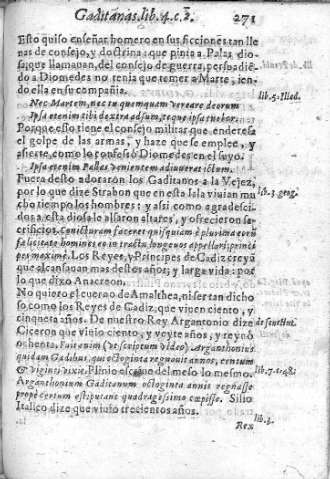 Gaditanas. lib. 4. c. 2. 271
Esto quiso enseñar homero en sus ficciones tan lle
nas de consejo, y doctrina: que pinta a Palas dio-
sa, que llamauan, del consejo de guerra, persuadiē
do a Diomedes no tenia que temer a Marte, ien-
do ella en su compañia. lib. 5. Iliad.
Nec Martem, nec tu quemquam vereare deorum
Ipsa etenim tibi dextra adsum, teque ipsa tuebor.
Porque esto tiene el consejo militar que endereſa
el golpe de las armas, y haze que se emplee, y
acierte, como lo confessó Diomedes en el suyo.
Ipsa etenim Pallas venientem adiuuerat ictum.
Fuera desto adoraron los Gaditanos a la Vejez,
por lo que dize Strabon que en esta Isla viuian mu lib. 3. geog.
cho tiempo los hombres: y assi como agradesci-
dos a esta diosa le alsaron altares, y ofrecieron sa-
crificios. Coniicturam facere quis quiam è plurima eorū
fœlicitate homines eo in tractu longeuos appellari: princi
pes maximè. Los Reyes, y Principes de Cadiz creyā
que alcansauan mas destos años, y larga vida: por
lo que dixo Anacreon.
No quiero el cuerno de Amalthea, ni ser tan dicho
so, como los Reyes de Cadiz, que viuen ciento, y
cinqueta años. De nuestro Rey Argantonio dize de senectut.
Ciceron que viuio ciento, y veyte años, y reynó
ochenta. Fuit enim (vt scriptum video) Arganthonius
quidam Gadibus, qui octoginta regnauit annos, centum
& viginti vixit. Plinio escriue del mesmo lo mesmo. lib. 7. c. 48.
Arganthonium Gaditanum octoginta annis regnasse
prope certum est: putant quadragesimo cœpisse. Silio
Italico dize que viuio trecientos años. lib. 3.
Rex